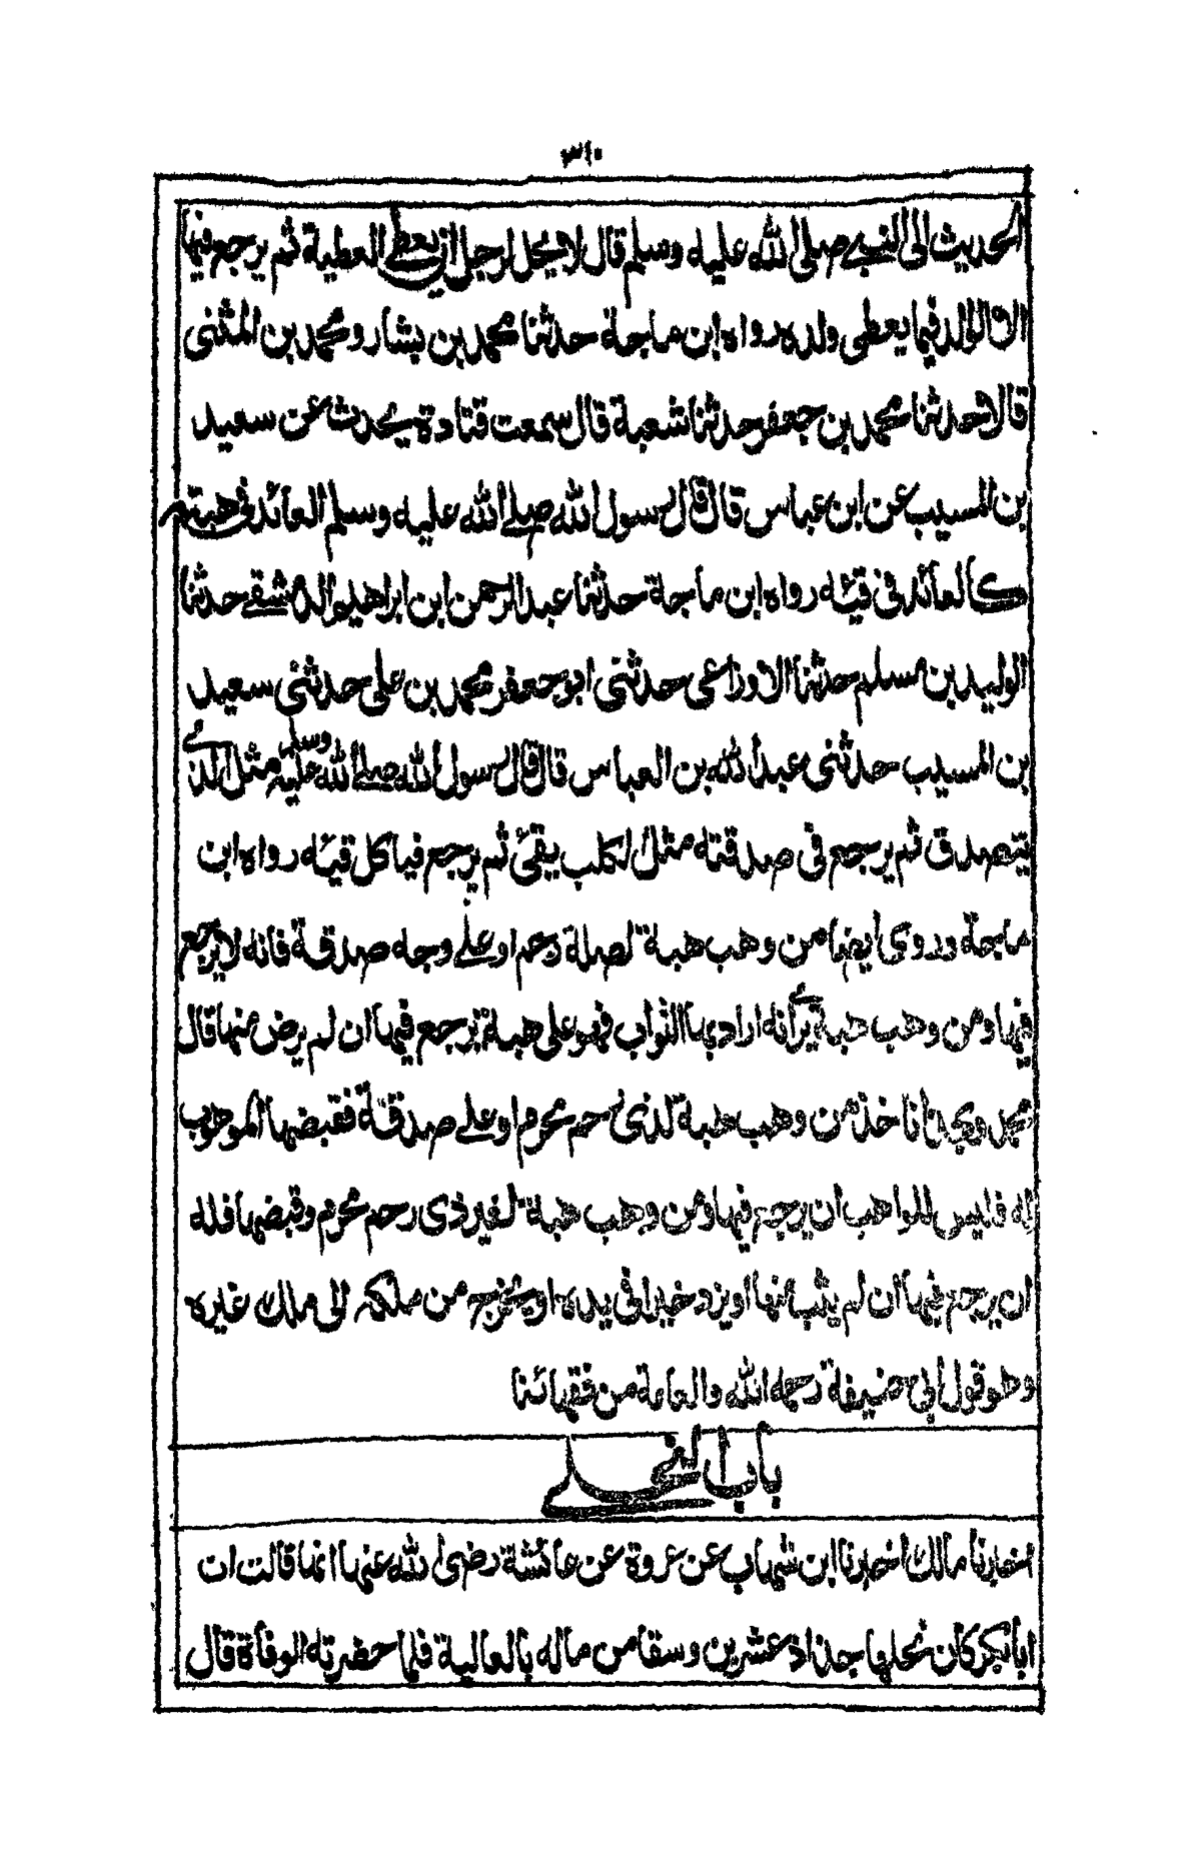 ٣١٠
الحديث الى النبي صلى الله عليه وسلم قال لا يحل لرجل ان يعطي العطية ثم يرجع فيها
الا الوالد فيما يعطى ولده رواه ابن ماجة حدثنا محمد بن بشار ومحمد بن المثنى
قالا حدثنا محمد بن جعفر حدثنا شعبة قال سمعت قتادة يحدث عن سعيد
بن المسيب عن ابن عباس قال قال رسول الله صلے الله عليه وسلم العائد فى هبته
كالعائد فى قيئه رواه ابن ماجة حدثنا عبد الرحمن ابن ابراهيم الدمشقے حدثنا
الوليد بن مسلم حدثنا الاوزاعى حدثنى ابو جعفر محمد بن على حدثنى سعيد
بن المسيب حدثنى عبد الله بن العباس قال قال رسول الله صلے الله عليه وسلم مثل الذے
يتصدق ثم يرجع فى صدقته مثل الكلب يقئ ثم يرجع فياكل قيئه رواه ابن
ماجة وروى ايضا من وهب هبة لصلة رحم او علے وجه صدقة فانه لا يرجع
فيها ومن وهب هبة يرے انه اراد بها الثواب فهو على هبة يرجع فيها ان لم يرض منها قال
محمد وبهذا ناخذ من وهب هبة لذى رحم محرم او علے صدقة فقبضها الموهوب
له فليس للواهب ان يرجع فيها ومن وهب هبة لغير ذى رحم محرم وقبضها فله
ان يرجع فيها ان لم يثب منها او يزد خيرا فى يده او يخرج من ملكه الى ملك غيره
وهو قول ابى حنيفة رحمه الله والعامة من فقهائنا
باب النحلے
اخبرنا مالك اخبرنا ابن شهاب عن عروة عن عائشة رضى الله عنها انها قالت ان
ابا بكر كان نحلها جذاذ عشرين وسقا من ماله بالعالية فلما حضرته الوفاة قال